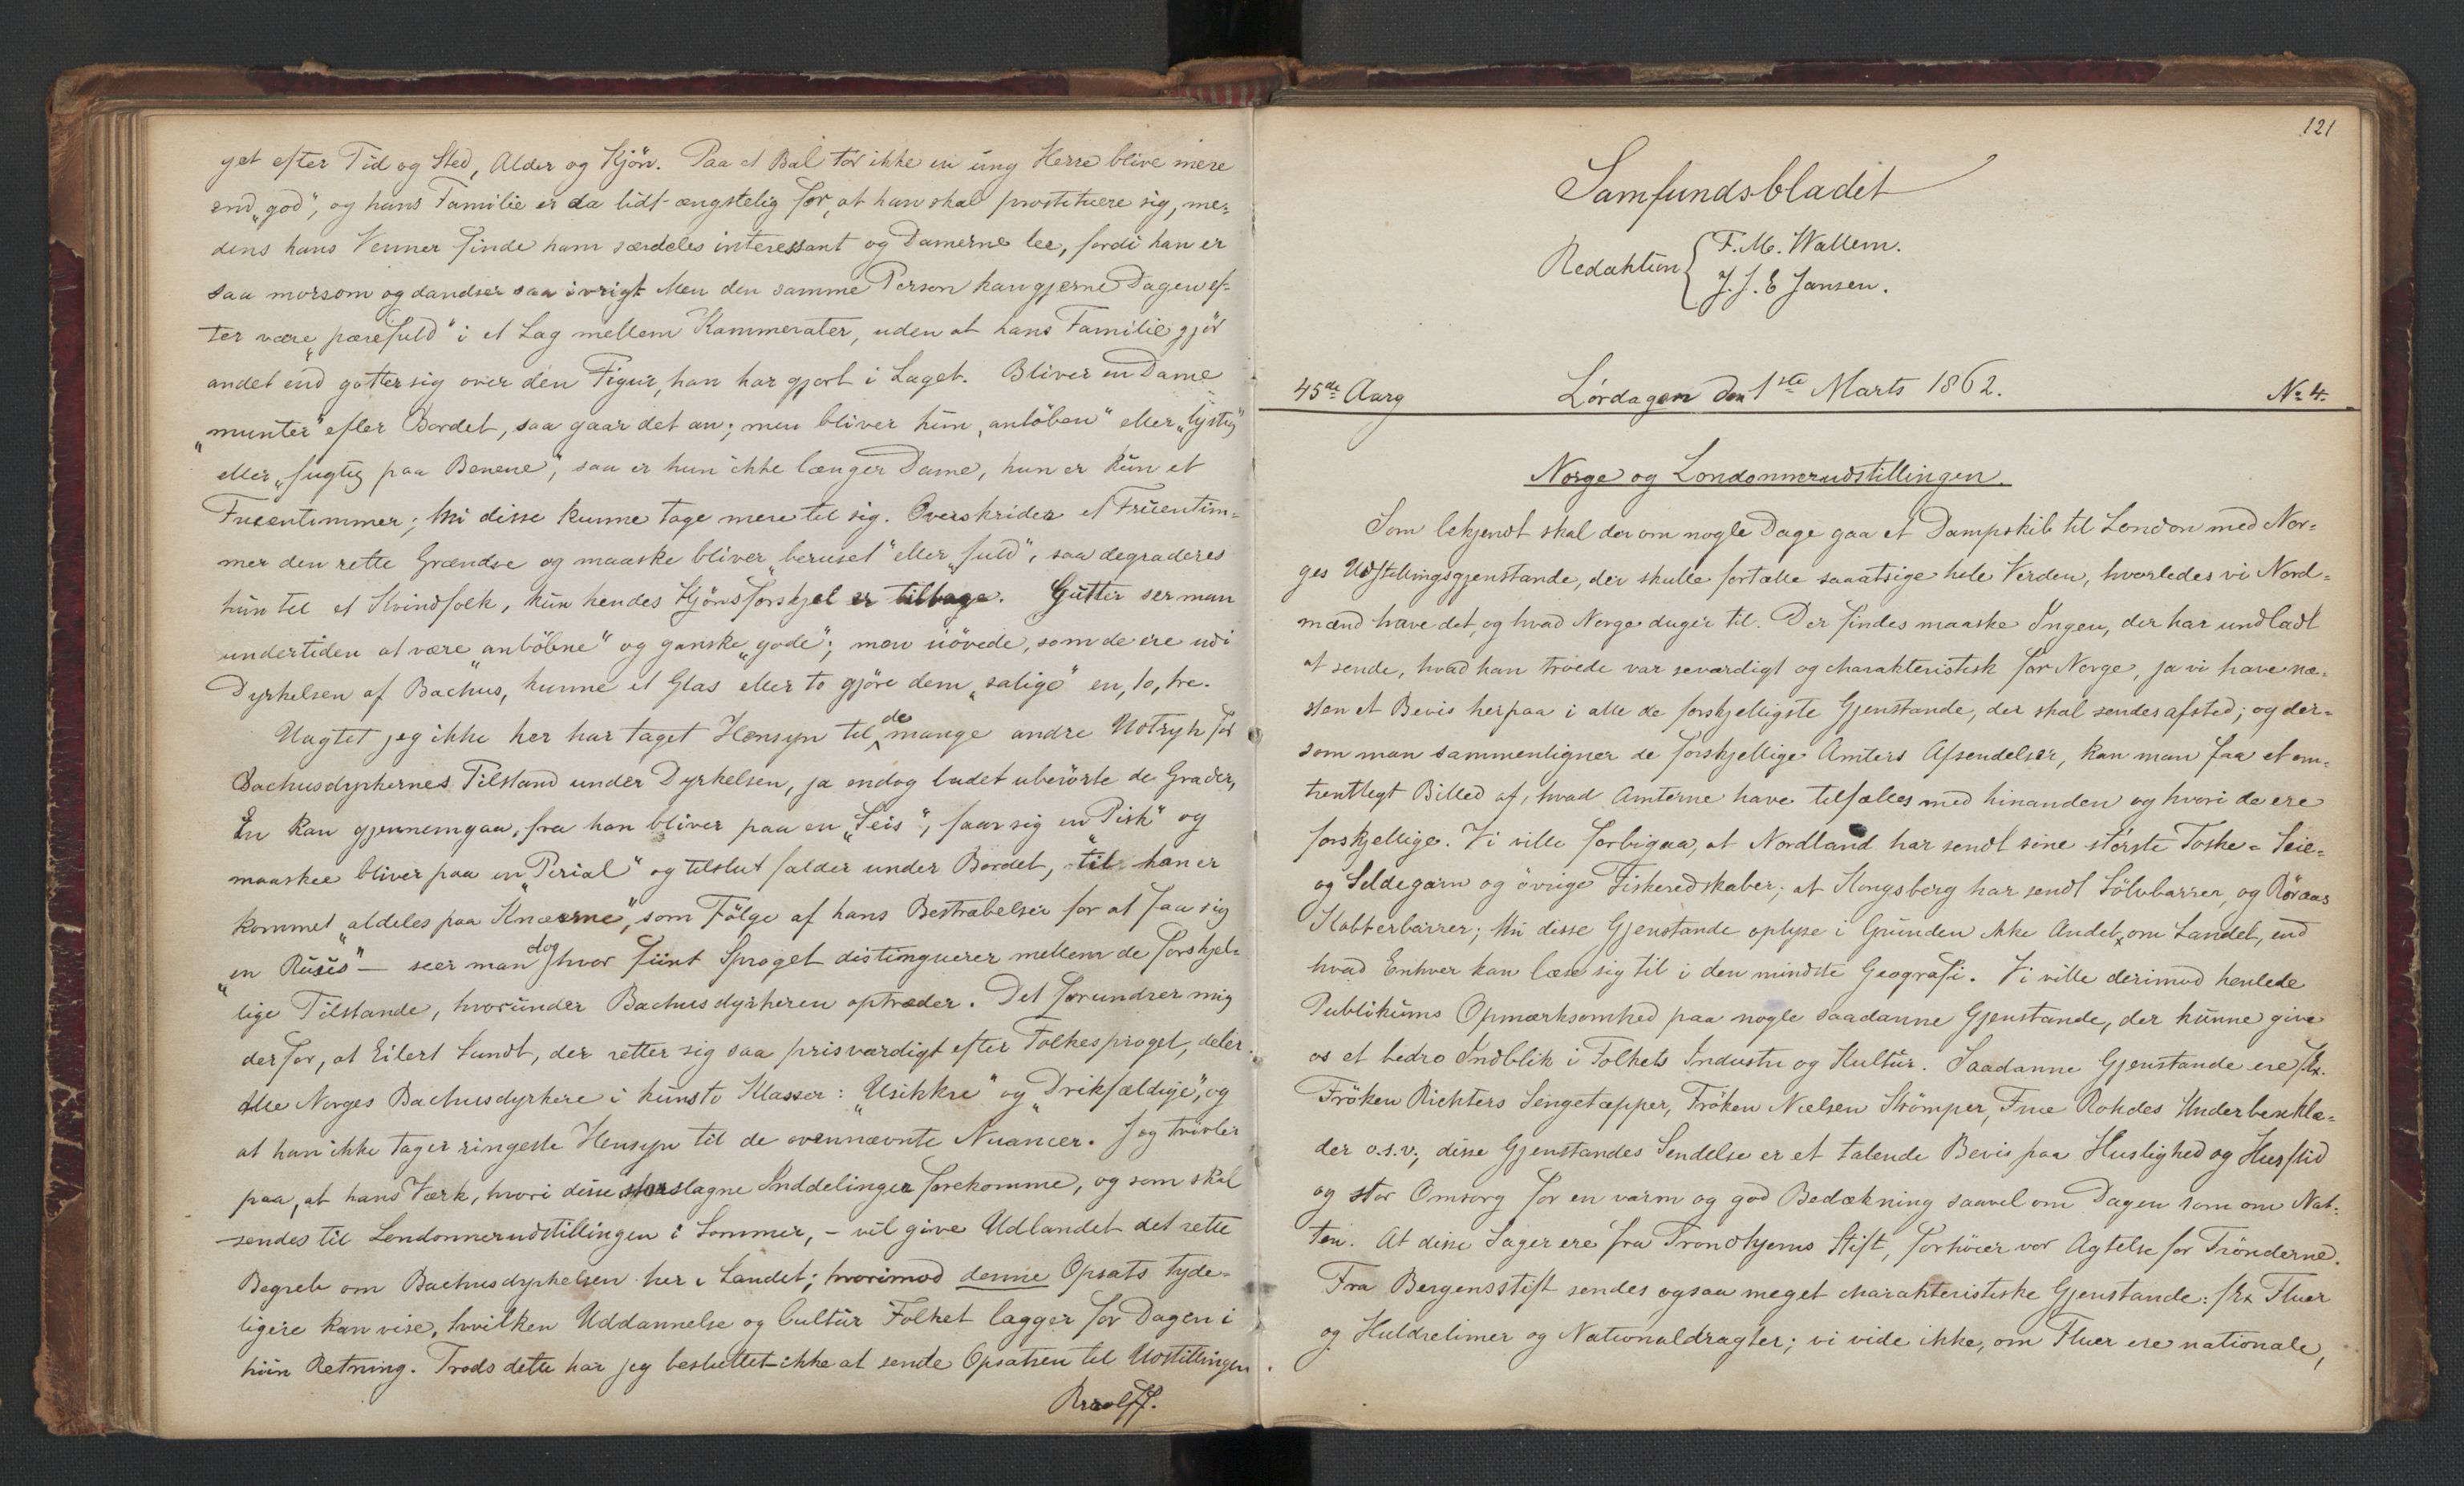 get efter Tid og Sted, Alder og Kjön. Paa et Bal tör ikke en ung Herre blive mere
end „god“, og hans Familie er da lidt ængstelig for, at han skal prostituere sig, me-
dens hans Venner finde ham særdeles interessant og Damerne lee, fordi han er
saa morsom og dandser saa ivrigt. Men den samme Person kan gjerne Dagen ef-
ter være „pærefuld“ i et Lag mellem Kammerater, uden at hans Familie gjör
andet end gotter sig over den Figur, han har gjort i Laget. Bliver en Dame
„munter“ efter Bordet, saa gaar det an; men bliver hun „anlöben“ eller „lystig“
eller „fugtig paa Benene“, saa er hun ikke længer Dame, hun er kun et
Fruentimmer; thi disse kunne tage mere til sig. Overskrider et Fruentim-
mer den rette Grændse og maaske bliver „beruset“ eller „fuld“, saa degraderes
hun til et Kvindfolk, kun hendes Kjönsforskjel er tilbage. Gutter ser man
undertiden at være „anlöbne“ og ganske „gode“; men uövede, som de ere udi
Dyrkelsen af Bachus, kunne et Glas eller to gjöre dem „salige“ en, to, tre.
Uagtet jeg ikke her har taget Hensyn til de mange andre Udtryk for
Bachusdyrkernes Tilstand under Dyrkelsen, ja endog ladet uberörte de Grader,
En kan gjennemgaa, fra han bliver paa en „Seis“, faar sig en „Pisk“ og
maaskee bliver paa en „Perial“ og tilslut falder under Bordet, til han er
kommet „aldeles paa Knæerne“, som Fölge af hans Bestræbelser for at faa sig
„en Ruus“ — seer man dog hvor fiint Sproget distinguerer mellem de forskjel-
lige Tilstande, hvorunder Bachusdyrkeren optræder. Det forundrer mig
derfor, at Eilert Sundt, der retter sig saa prisværdigt efter Folkesproget, deler
alle Norges Bachusdyrkere i kun to Klasser: „Usikkre“ og „Drikfældige“, og
at han ikke tager ringeste Hensyn til de ovennævnte Nuancer. Jeg tvivler
paa, at hans Værk, hvori disse storslagne Inddelinger forekomme, og som skal
sendes til Londonnerudstillingen i Sommer, – vil give Udlandet det rette
Begreb om Bachusdyrkelsen her i Landet; hvorimod denne Opsats tyde-
ligere kan vise, hvilken Uddannelse og Cultur Folket lægger for Dagen i
hiin Retning. Trods dette har jeg besluttet ikke at sende Opsatsen til Udstillingen.
121
Samfundsbladet
Redaktion { F. M. Wallem.
J. J. E Jansen.
45de Aarg Lördagen den 1ste Marts 1862. No 4.
Norge og Londonnerudstillingen.
Som bekjendt skal der om nogle Dage gaa et Dampskib til London med Nor-
ges Udstillingsgjenstande, der skulle fortælle saaatsige hele Verden, hvorledes vi Nord-
mænd have det, og hvad Norge duger til. Der findes maaske Ingen, der har undladt
at sende, hvad han troede var seværdigt og charakteristisk for Norge, ja vi have næ-
sten et Bevis herpaa i alle de forskjelligste Gjenstande, der skal sendes afsted; og der-
som man sammenligner de forskjellige Amters Afsendelser, kan man faa et om-
trentligt Billed af, hvad Amterne have tilfælles med hinanden og hvori de ere
forskjellige. Vi ville forbigaa, at Nordland har sendt sine störste Toske- Seie-
og Sildegarn og övrige Fiskeredskaber; at Kongsberg har sendt Sölvbarrer, og Röraas
Kobberbarrer; thi disse Gjenstande oplyse i Grunden ikke Andet om Landet, end
hvad Enhver kan læse sig til i den mindste Geografi. Vi ville derimod henlede
Publikums Opmærksomhed paa nogle saadanne Gjenstande, der kunne give
os et bedre Indblik i Folkets Industri og Kultur. Saadanne Gjenstande ere f. Ex.
Fröken Richters Sengetæpper, Fröken Nielsen Strömper, Frue Rohdes Underbenklæ-
der o.s.v., disse Gjenstandes Sendelse er et talende Bevis paa Huslighed og Husflid
og stor Omsorg for en varm og god Bedækning saavel om Dagen som om Nat-
ten. At disse Sager ere fra Trondhjems Stift, forhöier vor Agtelse for Trönderne.
Fra Bergensstift sendes ogsaa meget charakteristiske Gjenstande: f Ex Fluer
og Huldrelimer og Nationaldragter; vi vide ikke, om Fluer ere nationale,